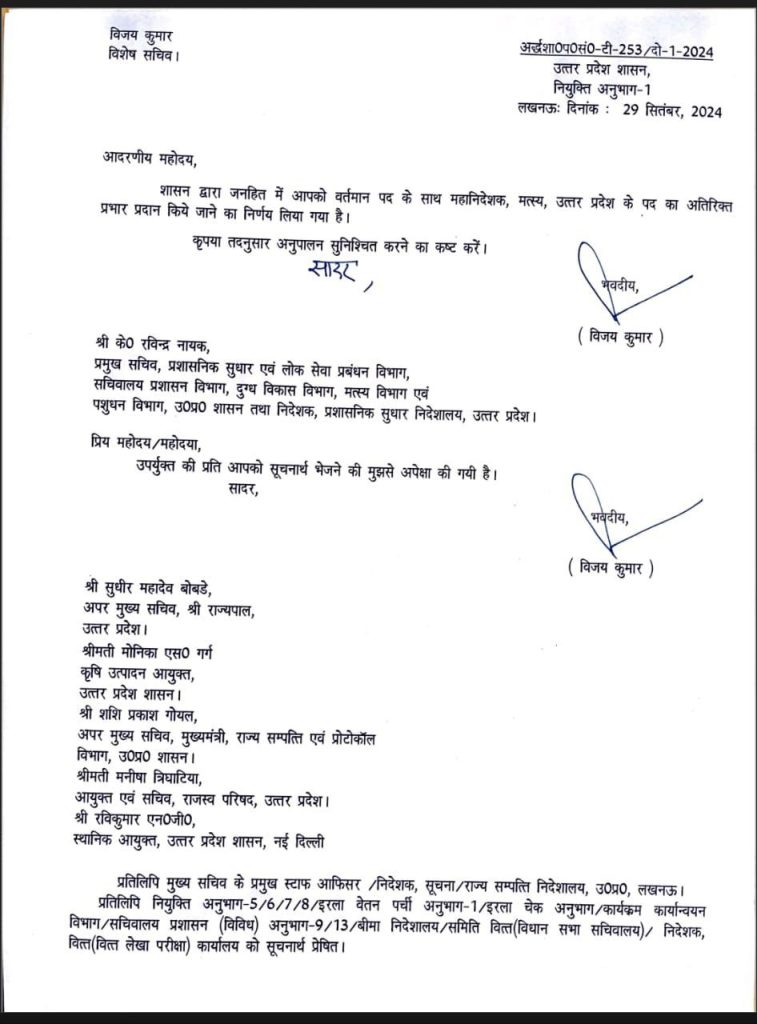 विजय कुमार
विशेष सचिव।
अर्द्धशा0प0सं0-टी-253/दो-1-2024
उत्तर प्रदेश शासन,
नियुक्ति अनुभाग-1
लखनऊः दिनांक : 29 सितंबर, 2024
आदरणीय महोदय,
शासन द्वारा जनहित में आपको वर्तमान पद के साथ महानिदेशक, मत्स्य, उत्तर प्रदेश के पद का अतिरिक्त
प्रभार प्रदान किये जाने का निर्णय लिया गया है।
कृपया तदनुसार अनुपालन सुनिश्चित करने का कष्ट करें।
सादर,
भवदीय,
( विजय कुमार )
श्री के0 रविन्द्र नायक,
प्रमुख सचिव, प्रशासनिक सुधार एवं लोक सेवा प्रबंधन विभाग,
सचिवालय प्रशासन विभाग, दुग्ध विकास विभाग, मत्स्य विभाग एवं
पशुधन विभाग, उ0प्र0 शासन तथा निदेशक, प्रशासनिक सुधार निदेशालय, उत्तर प्रदेश।
प्रिय महोदय/महोदया,
उपर्युक्त की प्रति आपको सूचनार्थ भेजने की मुझसे अपेक्षा की गयी है।
सादर,
भवदीय,
( विजय कुमार )
श्री सुधीर महादेव बोबडे,
अपर मुख्य सचिव, श्री राज्यपाल,
उत्तर प्रदेश।
श्रीमती मोनिका एस0 गर्ग
कृषि उत्पादन आयुक्त,
उत्तर प्रदेश शासन।
श्री शशि प्रकाश गोयल,
अपर मुख्य सचिव, मुख्यमंत्री, राज्य सम्पत्ति एवं प्रोटोकॉल
विभाग, उ0प्र0 शासन।
श्रीमती मनीषा त्रिघाटिया,
आयुक्त एवं सचिव, राजस्व परिषद, उत्तर प्रदेश।
श्री रविकुमार एन0जी0,
स्थानिक आयुक्त, उत्तर प्रदेश शासन, नई दिल्ली
प्रतिलिपि मुख्य सचिव के प्रमुख स्टाफ आफिसर /निदेशक, सूचना/राज्य सम्पत्ति निदेशालय, उ0प्र0, लखनऊ।
प्रतिलिपि नियुक्ति अनुभाग-5/6/7/8/इरला वेतन पर्ची अनुभाग-1/इरला चेक अनुभाग/कार्यक्रम कार्यान्वयन
विभाग/सचिवालय प्रशासन (विविध) अनुभाग-9/13/बीमा निदेशालय/समिति वित्त(विधान सभा सचिवालय)/ निदेशक,
वित्त(वित्त लेखा परीक्षा) कार्यालय को सूचनार्थ प्रेषित।